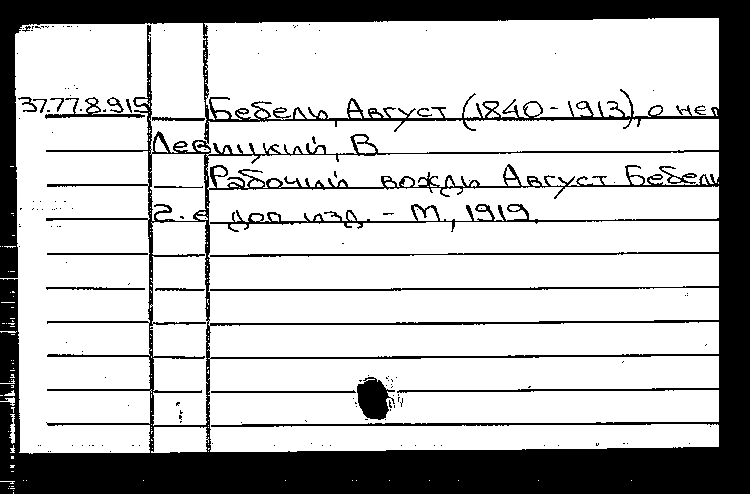 37.77.8.915 Бебель, Август (1840-1913), о нем
Левицкий, В
Рабочий вождь Август Бебель
2-е доп. изд. - М., 1919.